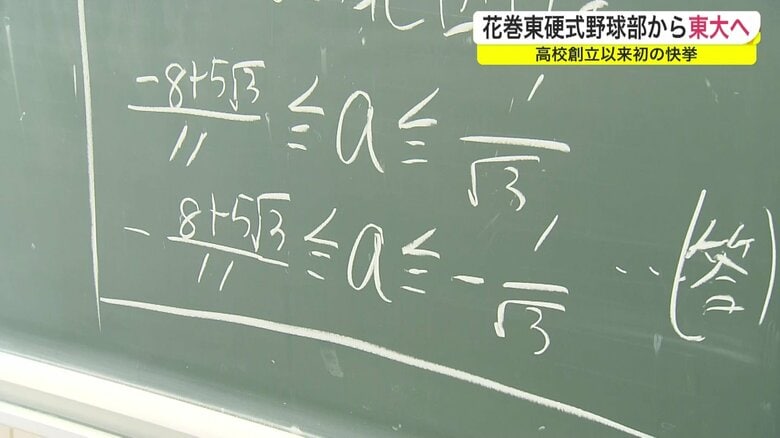 花巻東硬式野球部から東大へ
高校創立以来初の快挙
(-8+5√3)/11 ≦ a ≦ 1/√3
-(8+5√3)/11 ≦ a ≦ -1/√3 … (答)